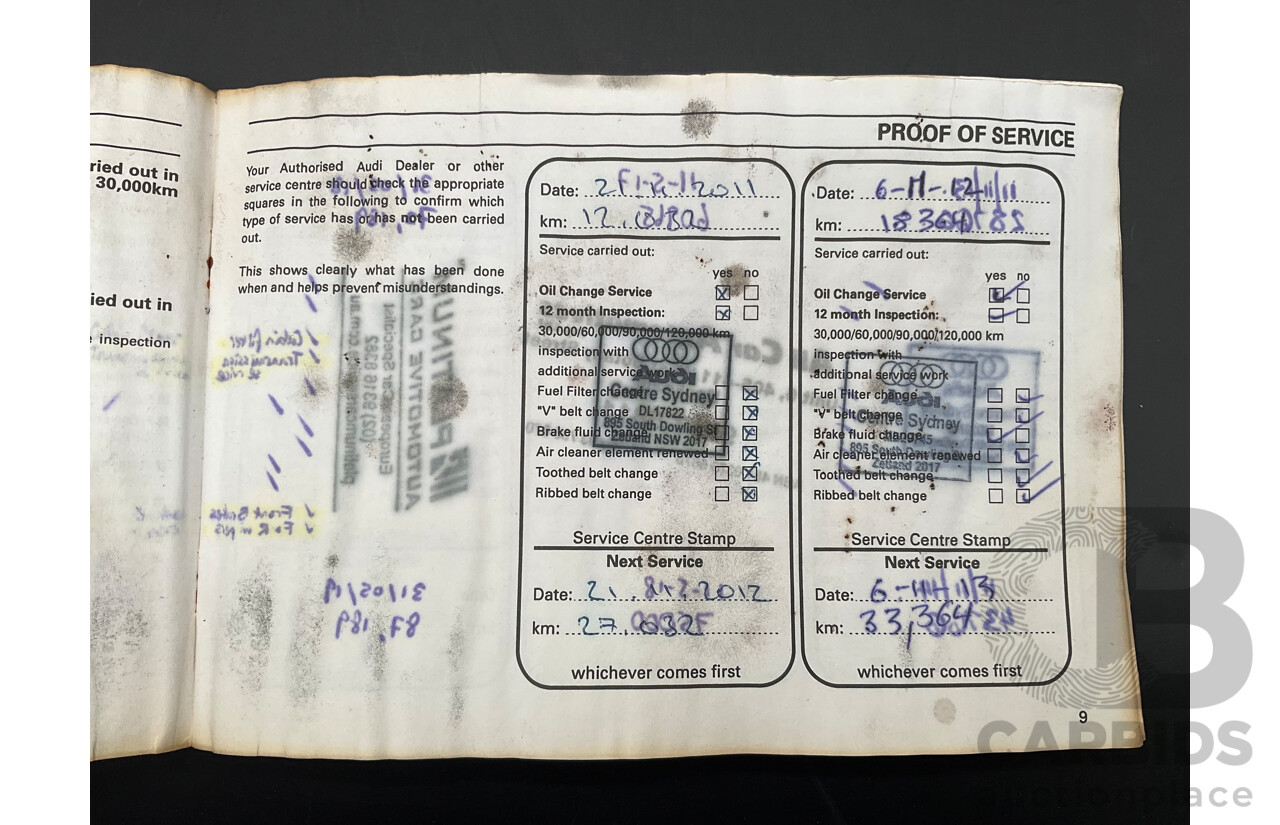 ried out in
30,000km
ied out in
e inspection
PROOF OF SERVICE
Your Authorised Audi Dealer or other
service centre should check the appropriate
squares in the following to confirm which
type of service has or has not been carried
out.
This shows clearly what has been done
when and helps prevent misunderstandings.
Date: 2011
km: 12.
Service carried out:
yes no
Oil Change Service
12 month Inspection:
30,000/60,000/90,000/120,000 km
inspection with
additional service work
Fuel Filter change
"V" belt change
Brake fluid change
Air cleaner element renewed
Toothed belt change
Ribbed belt change
Audi
Centre Sydney
DL17822
895 South Dowling St
Zetland NSW 2017
Service Centre Stamp
Next Service
Date: 21. 2012
km: 27.
whichever comes first
Date: 6-11-12
km: 18364
Service carried out:
yes no
Oil Change Service
12 month Inspection:
30,000/60,000/90,000/120,000 km
inspection with
additional service work
Fuel Filter change
"V" belt change
Brake fluid change
Air cleaner element renewed
Toothed belt change
Ribbed belt change
Centre Sydney
Zetland 2017
Service Centre Stamp
Next Service
Date: 6-
km: 33,364
whichever comes first
9
CARBIDS
auctionplace